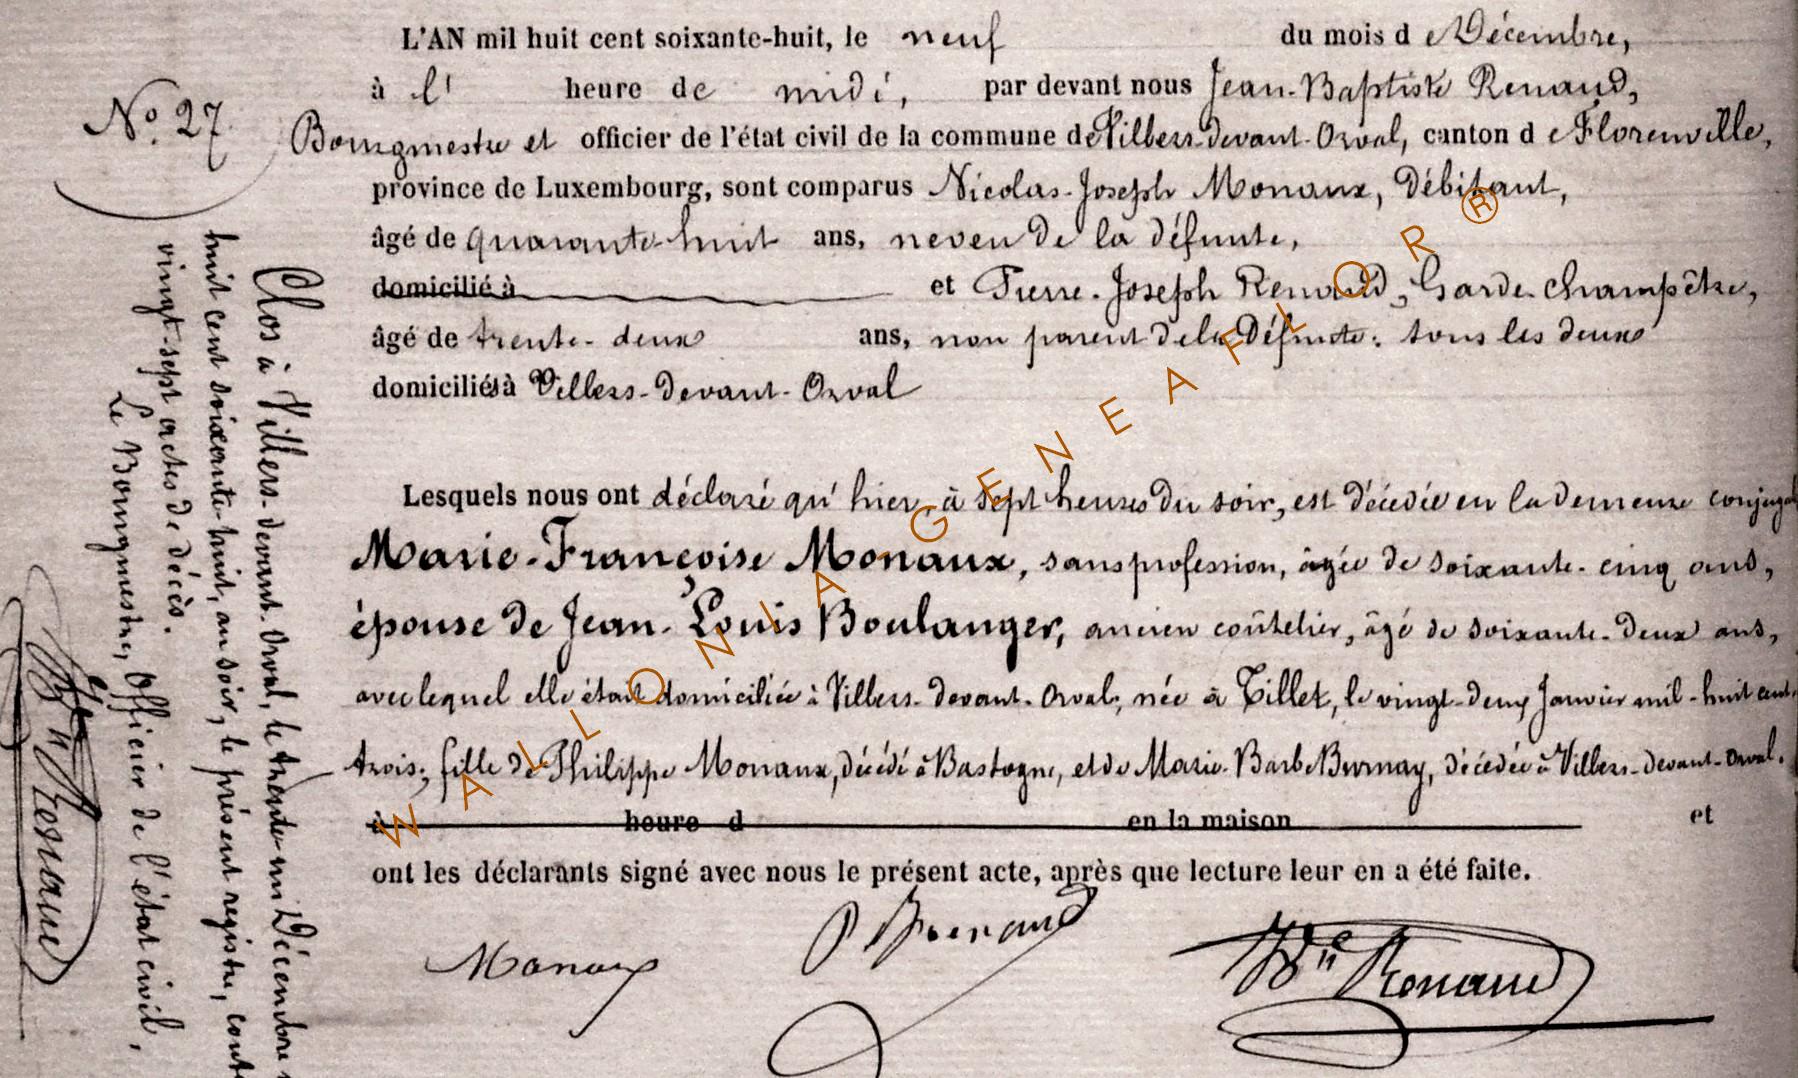 L'AN mil huit cent soixante-huit, le neuf du mois de Décembre,
à l' heure de midi, par devant nous Jean-Baptiste Renaud,
N° 27
Bourgmestre et officier de l'état civil de la commune de Villers-devant-Orval, canton de Florenville,
province de Luxembourg, sont comparus Nicolas-Joseph Monaux, Débitant,
âgé de quarante-huit ans, neveu de la défunte,
domicilié à et Pierre-Joseph Renaud, Garde-Champêtre,
âgé de trente-deux ans, non parent de la Défunte; tous les deux
domiciliés à Villers-devant-Orval
Lesquels nous ont déclaré qu'hier, à sept heures du soir, est décédée en la demeure conjugal
Marie-Françoise Monaux, sans profession, âgée de soixante-cinq ans,
épouse de Jean-Louis Boulanger, ancien coûtelier, âgé de soixante-deux ans,
avec lequel elle était domiciliée à Villers-devant-Orval; née à Tillet, le vingt-deux Janvier mil-huit cent-
trois; fille de Philippe Monaux, décédé à Bastogne, et de Marie-Barbe Burnay, décédée à Villers-devant-Orval.
à heure d en la maison et
ont les déclarants signé avec nous le présent acte, après que lecture leur en a été faite.
Monaux
P Renaud
Bte Renaud
Clos à Villers-devant-Orval, le trente-un Décembre
huit cent soixante-huit, au soir, le présent registre, conte
vingt-sept actes de décès.
Le Bourgmestre, Officier de l'état civil,
Bte Renaud
WALLONIA-GENEAFLOR®